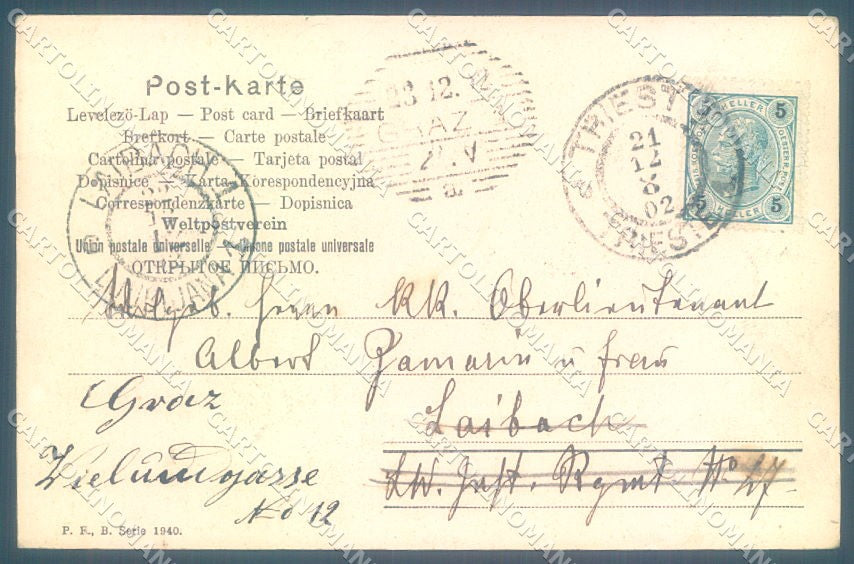 Post-Karte
Levelező-Lap — Post card — Briefkaart
Brefkort — Carte postale
Cartolina postale — Tarjeta postal
Dopisnice — Karta Korespondencyjna
Correspondenzkarte — Dopisnica
Weltpostverein
Union postale universelle — Unione postale universale
ОТКРЫТОЕ ПИСЬМО.
23 12.
GRAZ
TRIEST
21
12
02
TRIESTE
5 HELLER 5
5 HELLER 5
LAIBACH
LJUBLJANA
Herrn KK. Oberlieutenant
Albert Zamarin u Frau
Laibach
LW. Inft. Rgmt No 27
Graz
No 12
P. F., B. Serie 1940.
CARTOLINOMANIA